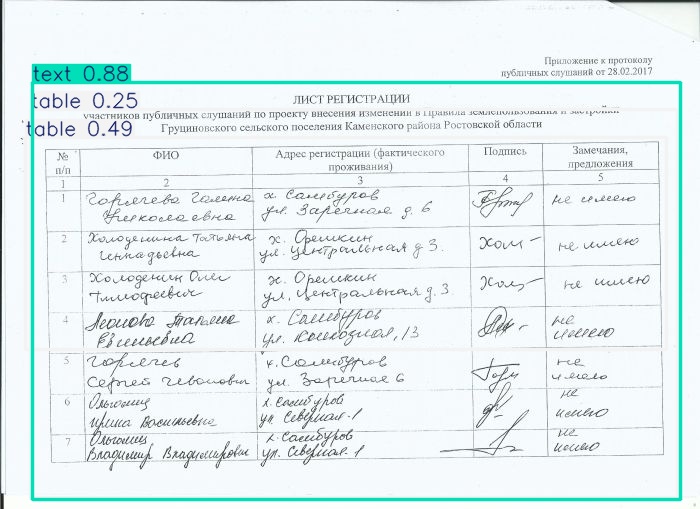 text 0.88
Приложение к протоколу
публичных слушаний от 28.02.2017
table 0.25
ЛИСТ РЕГИСТРАЦИИ
участников публичных слушаний по проекту внесения изменений в Правила землепользования и застройки
table 0.49
Груциновского сельского поселения Каменского района Ростовской области
№ п/п ФИО Адрес регистрации (фактического проживания) Подпись Замечания, предложения
1 2 3 4 5
1 Горячева Галина Николаевна х. Самбуров ул. Заречная д. 6 не имею
2 Холоденина Татьяна Геннадьевна х. Орешкин ул. Центральная д 3. Хол не имею
3 Холоденин Олег Тимофеевич х. Орешкин ул. Центральная д. 3 Хол не имею
4 Леонова Татьяна Евгеньевна х. Самбуров ул. Колхозная, 13 не имею
5 Горячев Сергей Иванович х. Самбуров ул. Заречная 6 не имею
6 Ирина Васильевна х. Самбуров ул Северная-1 не имею
7 Владимир Владимирович х. Самбуров ул. Северная-1 не имею